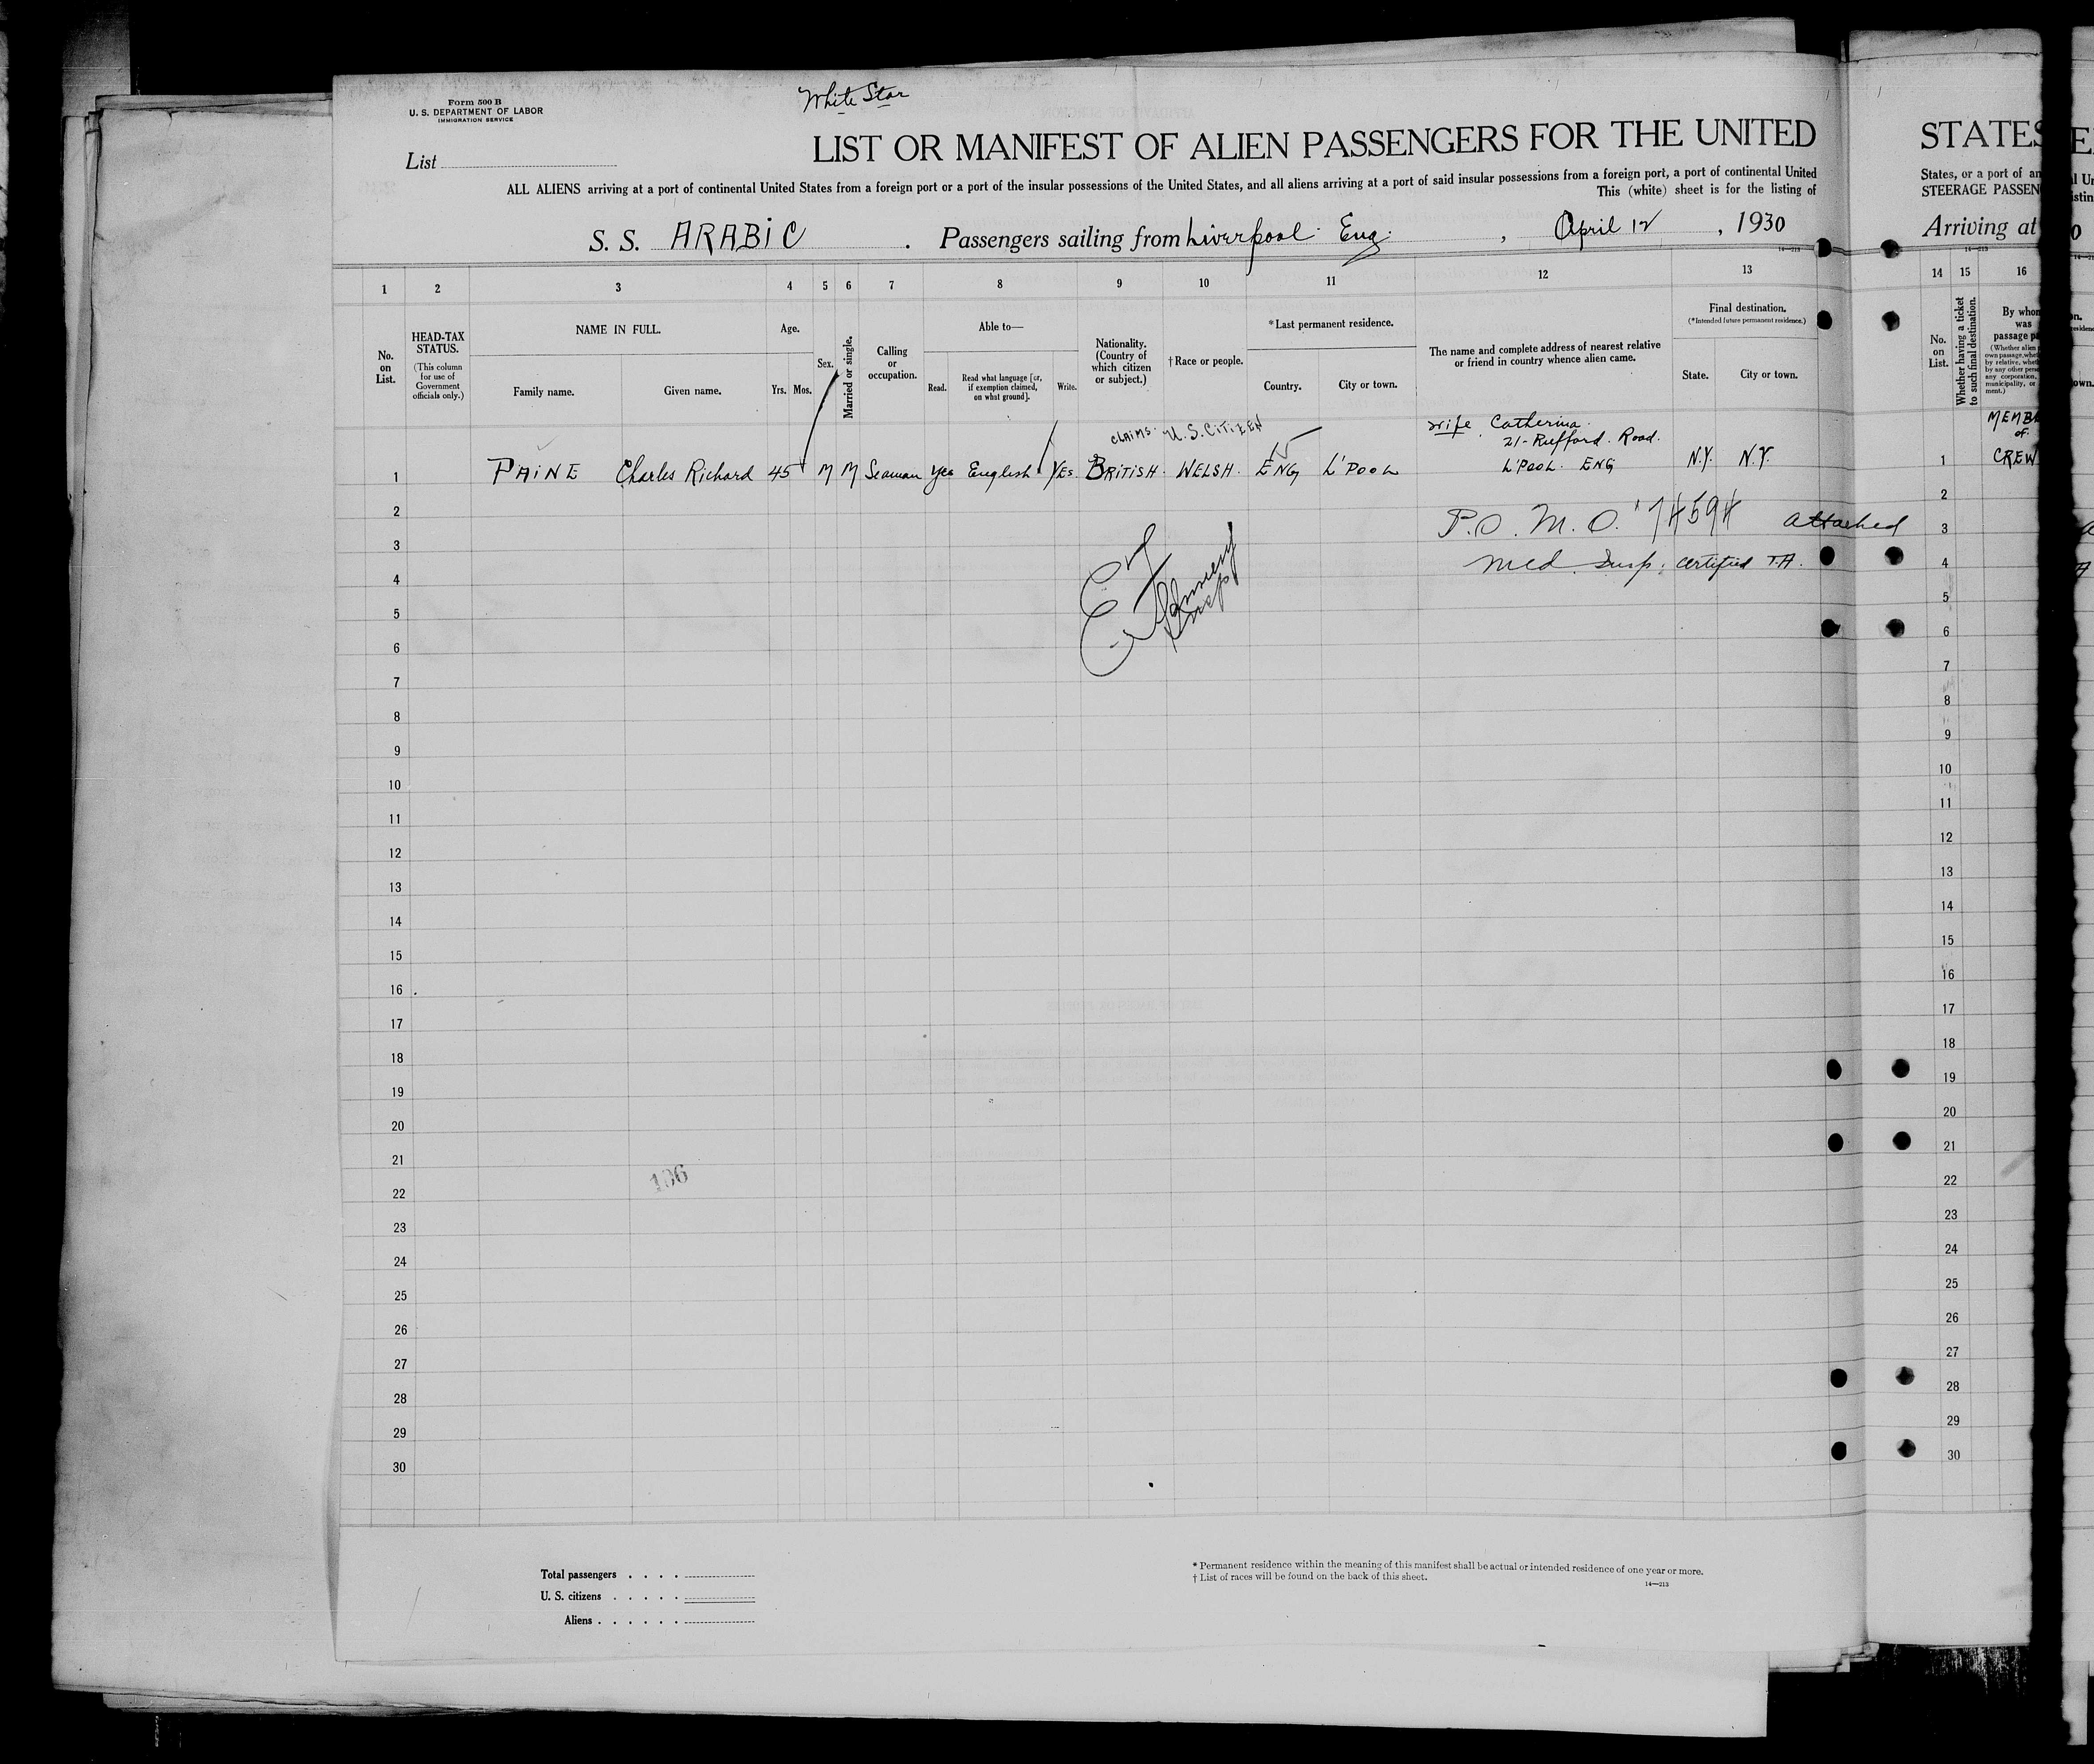 Form 500 B
U. S. DEPARTMENT OF LABOR
IMMIGRATION SERVICE
White Star
List
LIST OR MANIFEST OF ALIEN PASSENGERS FOR THE UNITED
ALL ALIENS arriving at a port of continental United States from a foreign port or a port of the insular possessions of the United States, and all aliens arriving at a port of said insular possessions from a foreign port, a port of continental United
This (white) sheet is for the listing of
S. S. ARABIC . Passengers sailing from Liverpool Eng. , April 12 , 1930
14—213
1 2 3 4 5 6 7 8 9 10 11 12 13
No. on List.
HEAD-TAX STATUS.
(This column for use of Government officials only.)
NAME IN FULL.
Family name. Given name.
Age.
Yrs. Mos.
Sex.
Married or single.
Calling or occupation.
Able to—
Read.
Read what language [or, if exemption claimed, on what ground].
Write.
Nationality. (Country of which citizen or subject.)
†Race or people.
*Last permanent residence.
Country. City or town.
The name and complete address of nearest relative or friend in country whence alien came.
Final destination.
(*Intended future permanent residence.)
State. City or town.
CLAIMS U.S. CITIZEN
wife Catherina
21- Rufford Road.
1 PAINE Charles Richard 45 M M Seaman yes English YES BRITISH WELSH ENG L'POOL L'POOL ENG N.Y. N.Y.
2
3 P.O. M.O. 74594 attached
4 Med Insp. certified T.A.
5
6
7
8
9
10
11
12
13
14
15
16
17
18
19
20
21
22
23
24
25
26
27
28
29
30
106
Total passengers
U. S. citizens
Aliens
* Permanent residence within the meaning of this manifest shall be actual or intended residence of one year or more.
† List of races will be found on the back of this sheet.
14—213
STATES
States, or a port of an
STEERAGE PASSEN
Arriving at
14—213
14 15 16
No. on List.
Whether having a ticket to such final destination.
By whom was passage
MEMB
of
1 CREW
2
3
4
5
6
7
8
9
10
11
12
13
14
15
16
17
18
19
20
21
22
23
24
25
26
27
28
29
30